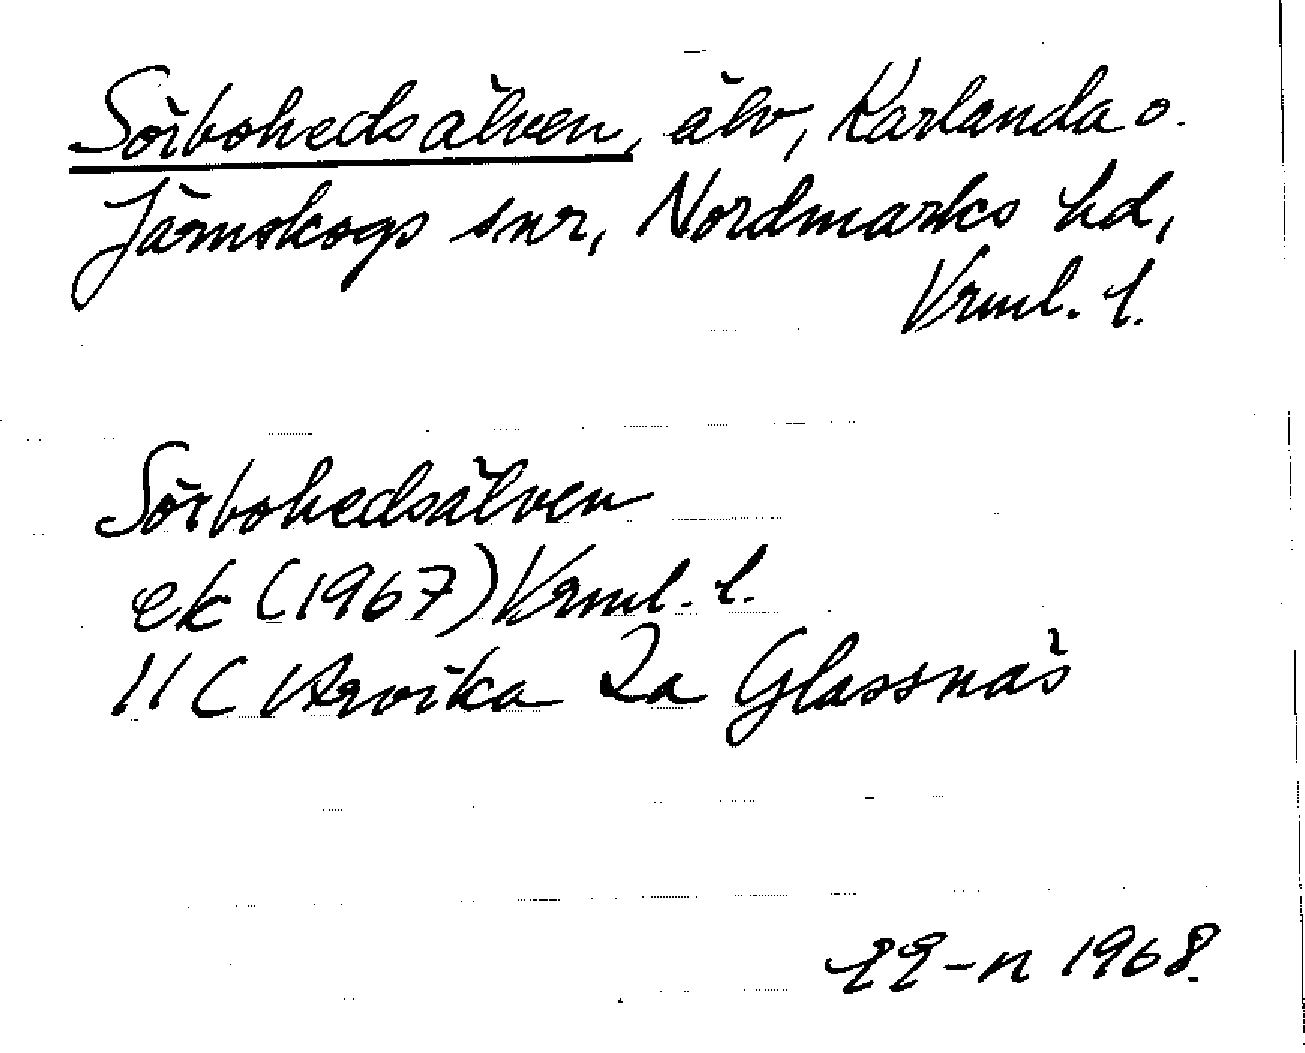 Sörbohedsälven, älv, Karlanda o.
Järnskogs snr, Nordmarks hd,
Vrml. l.
Sörbohedsälven
ek (1967) Vrml. l.
11 C Arvika 2a Glassnäs
1968.